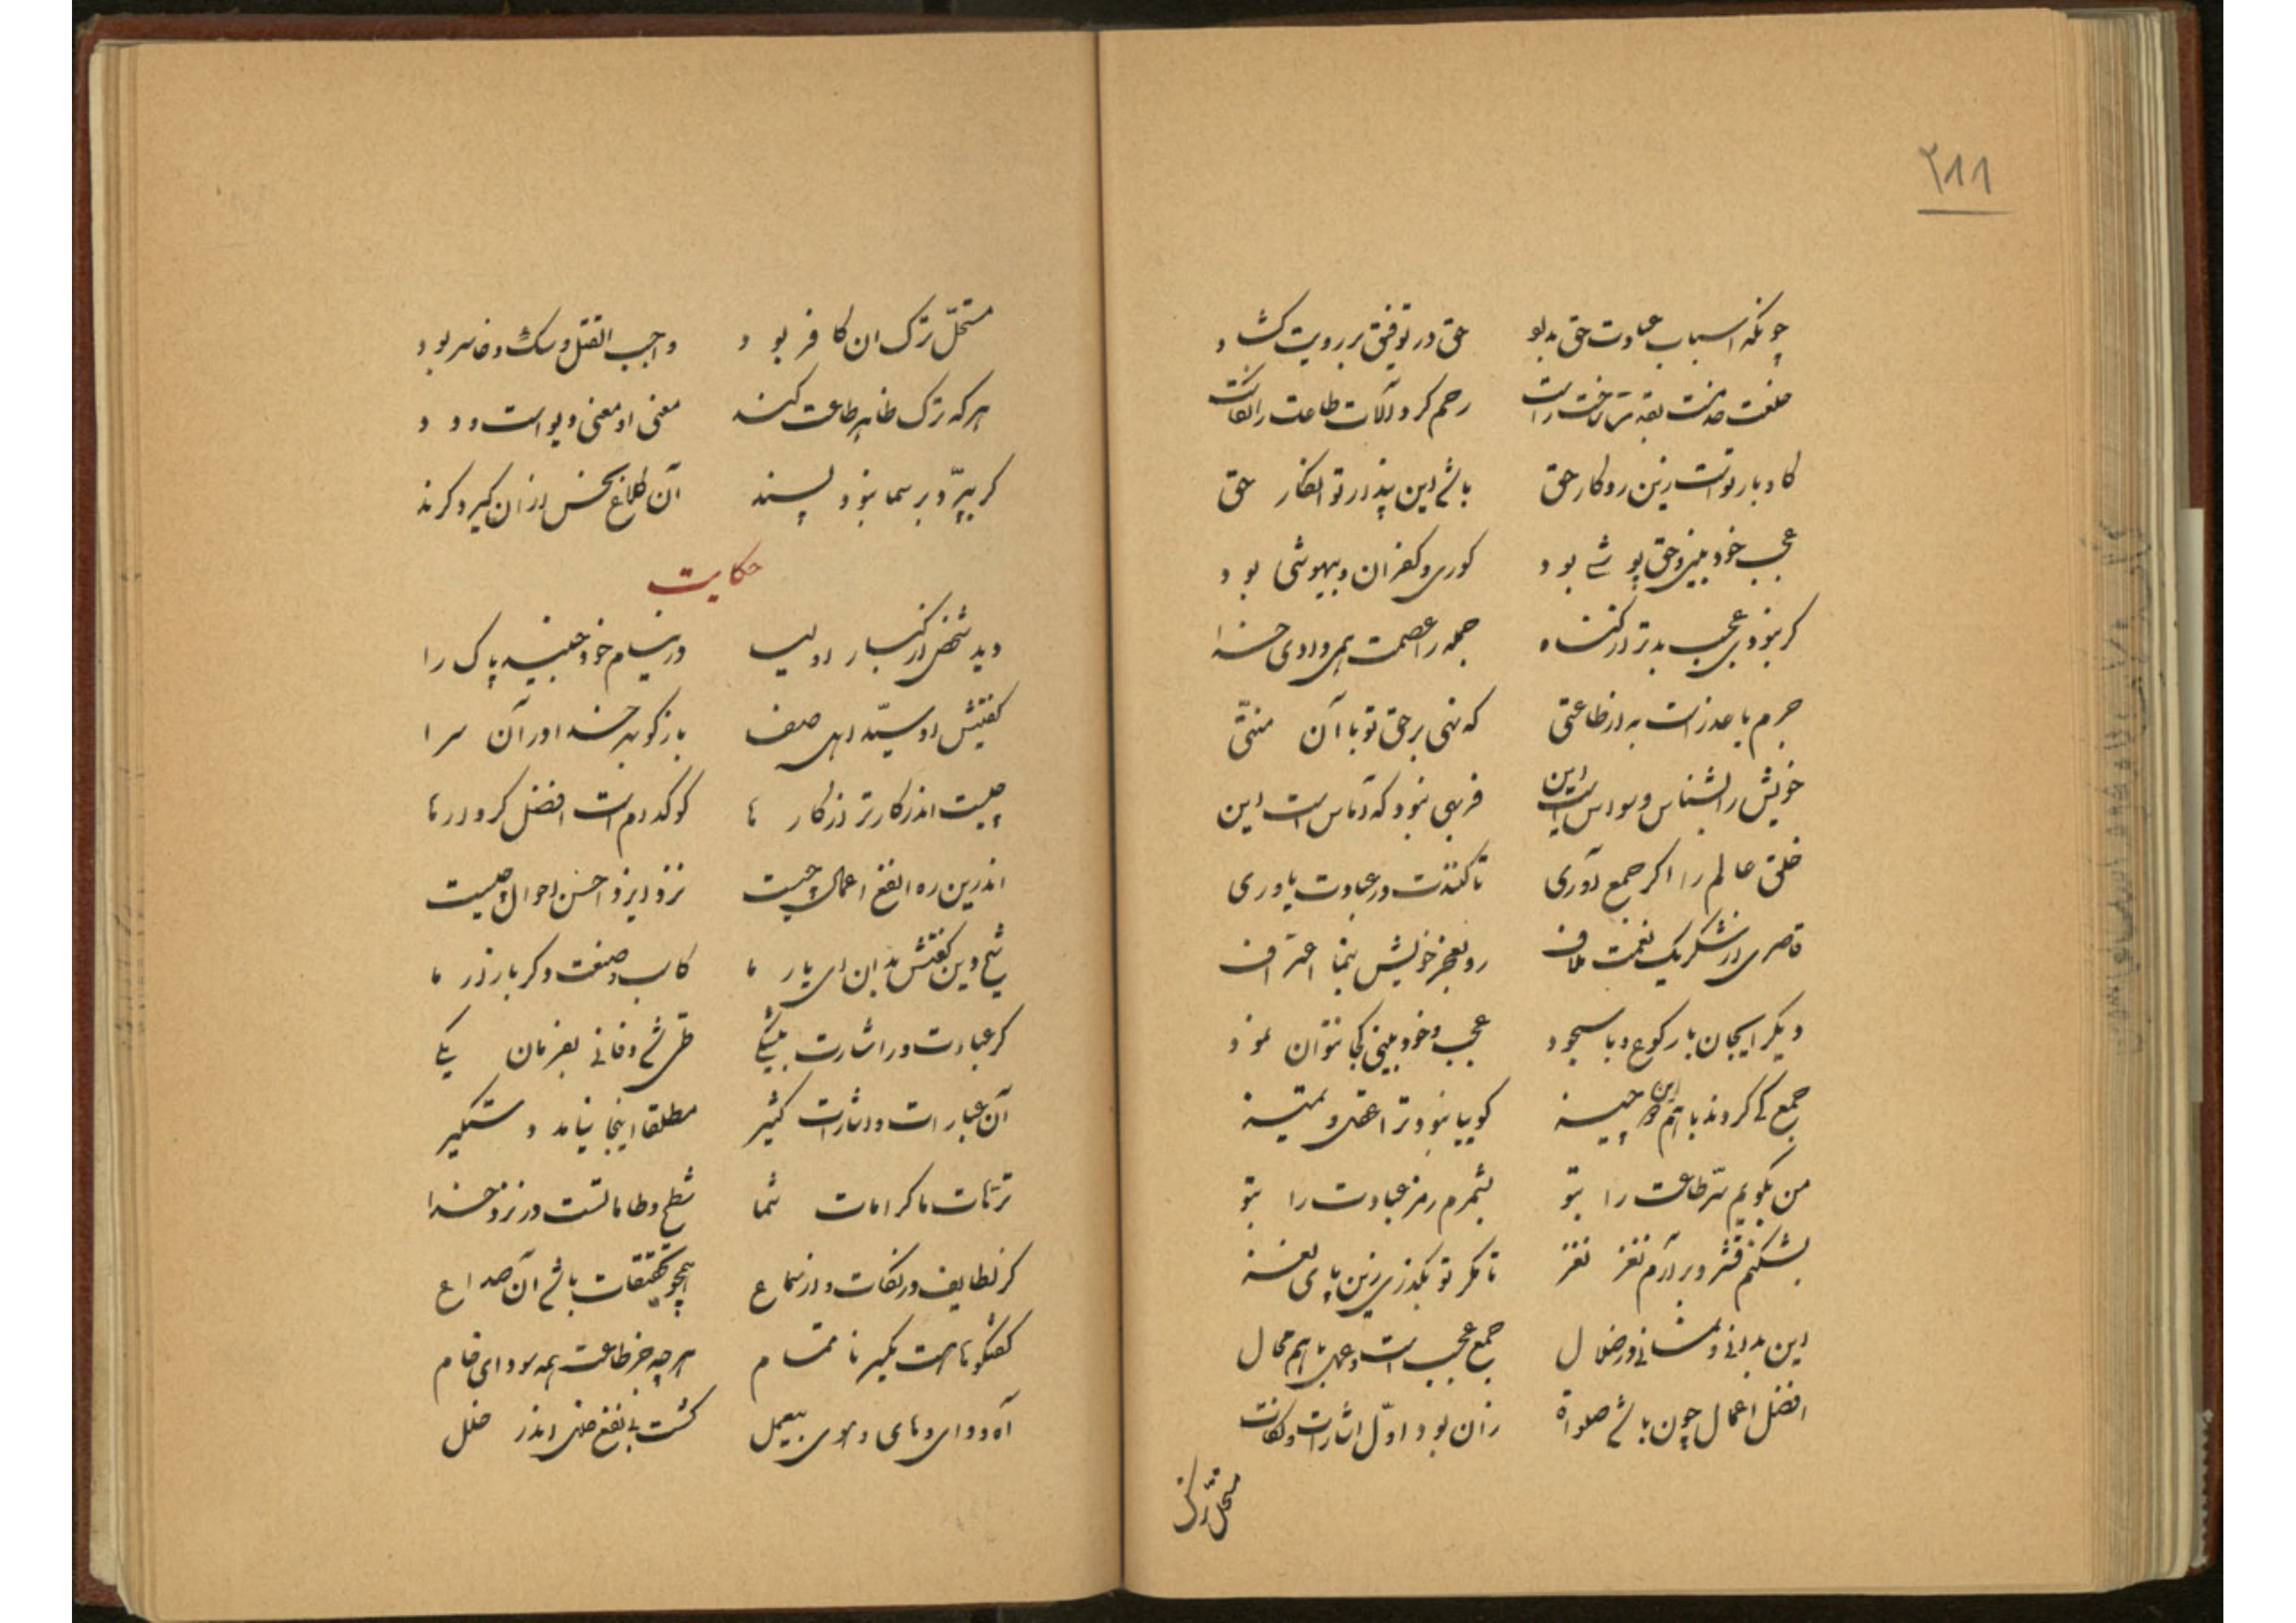 ۲۸۸
چونکه اسباب عبادت حق بداو حق در توفیق بر رویت کشاد
رحم کرد و آلات طاعت
کار و بار تو است زین رو کار حق باشی این پندار تو انکار حق
عجب خودبینی و حق پوشی بود کوری و کفران و بیهوشی بود
کر نبودی عجب بدتر از کناه جمله را عصمت همی دادی خدا
جرم با عذر است به از طاعتی که نهی بر حق تو با آن منتی
خویش را بشناس وسواس است این فربهی نبود که آماس است این
خلق عالم را اکر جمع آوری تا کنندت در عبادت یاوری
قاصری از شکر یک نعمت ملاف رو بعجز خویش بنما اعتراف
دیکر ایجان با رکوع و با سجود عجب و خودبینی کجا نتوان نمود
جمع کی کردند با هم این چیز کوییا نبود ترا عقل و تمیز
من بکویم سر طاعت را بتو بشمرم رمز عبادت را بتو
بشکنم قشر و برآرم نغز نغز تا مکر تو بکذری زین پای لغز
این بدانی و نمانی در ضلال جمع عجب است و عمل با هم محال
افضل اعمال چون باشی صلواة زان بود اول اشارات و نکات
مستحل ترک
مستحل ترک ان کافر بود واجب القتل و سک و خاسر بود
هر که ترک ظاهر طاعت کند معنی او معنی دیو است و دد
کر بپرد بر سما نبود پسند آن کلاغ نحس از آن کیرد کزند
حکایت
دید شخصی از کبار اولیا در منام خود جنید پاک را
کفتش او سید اهل صفا بازکو بهر خدا در آن سرا
چیست اندر کارتر از کارها کو کدام است افضل کردارها
اندرین ره انفع اعمال چیست نزد ایزد احسن احوال چیست
شیخ دین کفتش بدان ای یار ما کاسب و صنعت و کر بازار ما
کر عبادت ور اشارت بیشکی طی شد و فانی بفرمان یکی
آن عبارات و اشارات کثیر مطلقا اینجا نیامد دستکیر
ترهات ما کرامات شما شطح و طاماتست در نزد خدا
کر لطایف ور نکات و ور سماع همچو تحقیقات باشی آن صداع
کفتکوها هست یکسر ناتمام هر چه جز طاعت همه سودای خام
آه و وای و های و هوی بیعمل کشت بی نفع اندر خلل